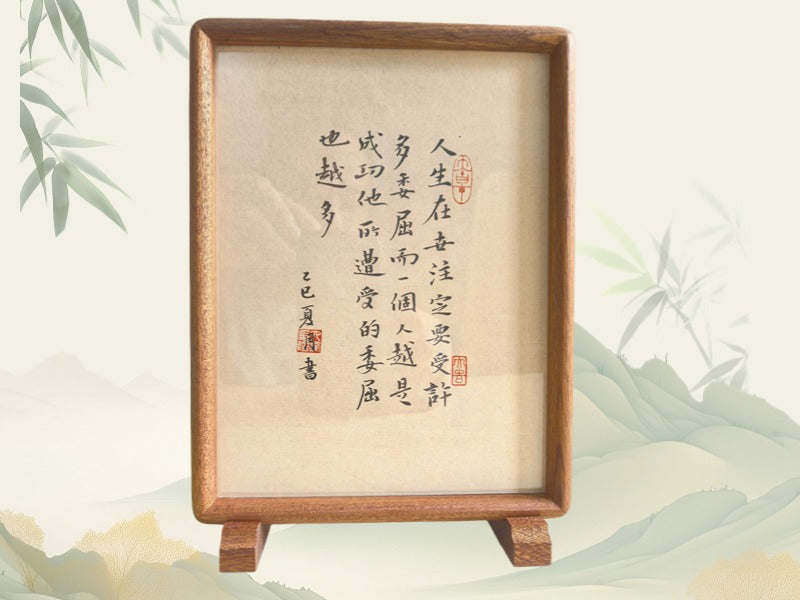 人生在世注定要受許
多委屈而一個人越是
成功他所遭受的委屈
也越多
乙巳夏
書